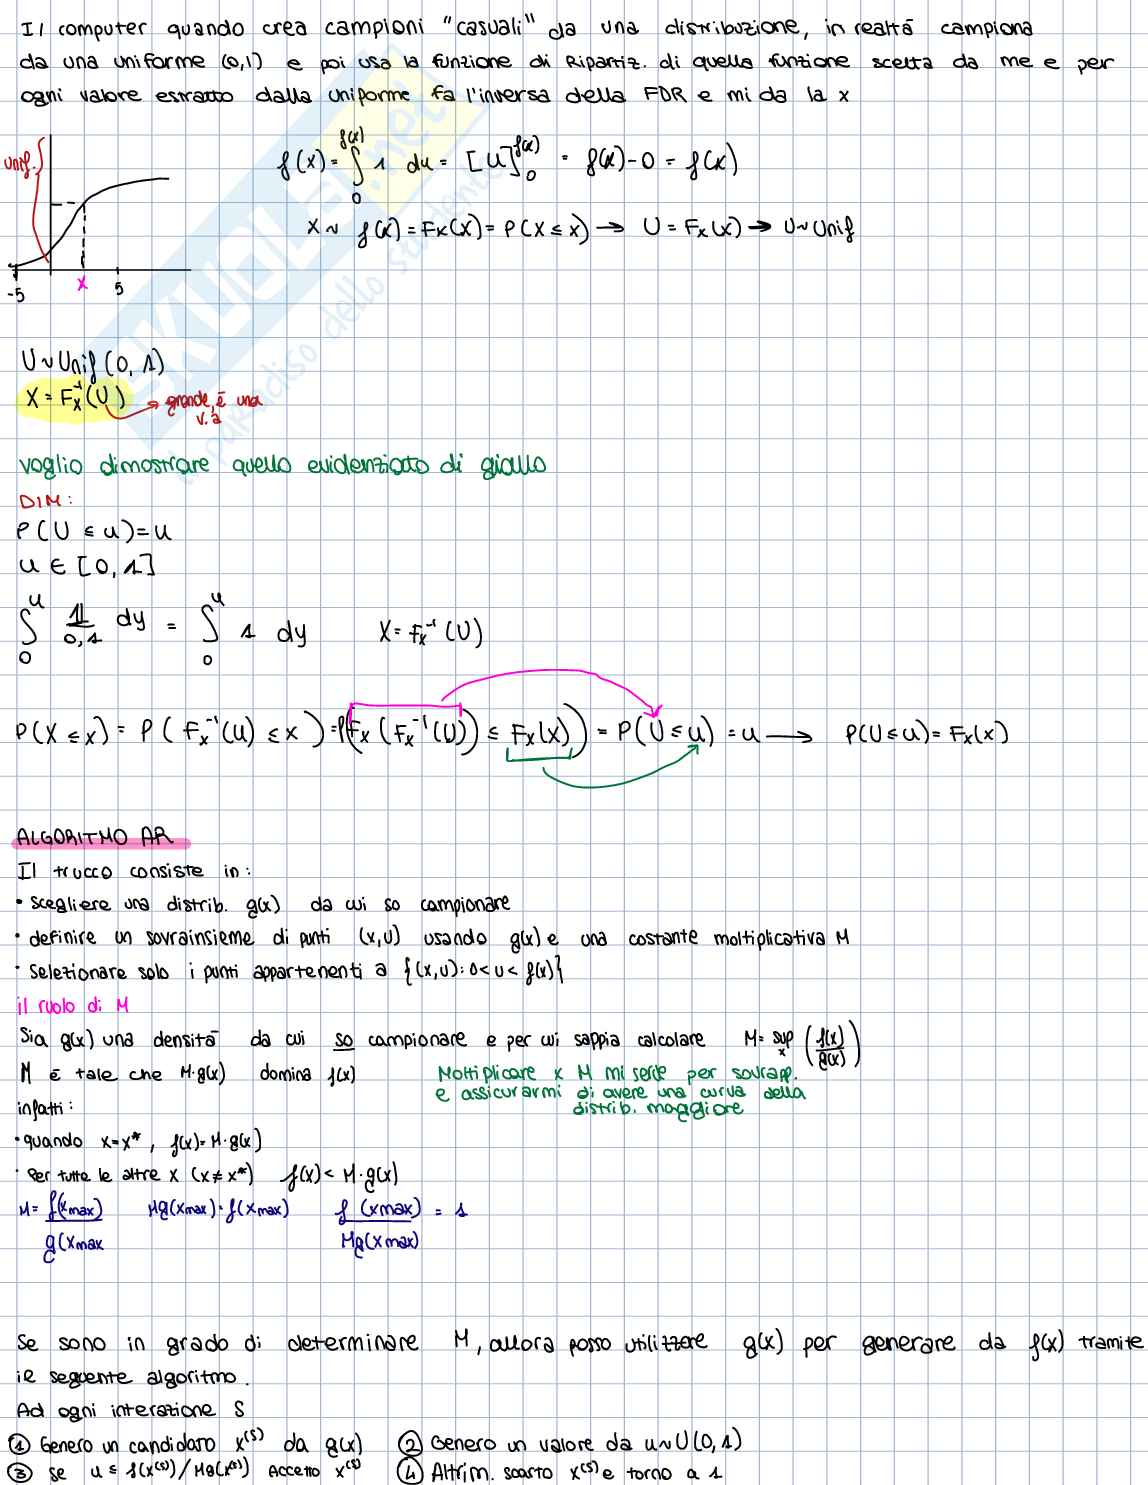 Il computer quando crea campioni "casuali" da una distribuzione, in realtà campiona
da una uniforme (0,1) e poi usa la funzione di Ripartiz. di quella funzione scelta da me e per
ogni valore estratto dalla uniforme fa l'inversa della FDR e mi da la x
Unif.
-5 x 5
f(x) = ∫₀^f(x) 1 du = [U]₀^f(x) = f(x)-0 = f(x)
X ~ f(x) = Fx(x) = P(X ≤ x) → U = Fx(x) → U~Unif
U~Unif (0, 1)
X = Fx⁻¹(U) → grande, è una
v.a
voglio dimostrare quello evidenziato di giallo
DIM:
P(U ≤ u) = u
u ∈ [0, 1]
∫₀^u 𝟙0,1 dy = ∫₀^u 1 dy X = Fx⁻¹(U)
P(X ≤ x) = P(Fx⁻¹(U) ≤ x) = P(Fx(Fx⁻¹(U)) ≤ Fx(x)) = P(U ≤ u) = u → P(U ≤ u) = Fx(x)
ALGORITMO AR
Il trucco consiste in:
• scegliere una distrib. g(x) da cui so campionare
• definire un sovrainsieme di punti (x,u) usando g(x) e una costante moltiplicativa M
• Selezionare solo i punti appartenenti a {(x,u): 0<u<f(x)}
il ruolo di M
Sia g(x) una densità da cui so campionare e per cui sappia calcolare M = sup x (f(x)/g(x))
M è tale che M·g(x) domina f(x) Moltiplicare x M mi serve per sovrapp.
e assicurarmi di avere una curva della
distrib. maggiore
infatti:
• quando x=x*, f(x)=M·g(x)
• Per tutte le altre x (x≠x*) f(x)<M·g(x)
M = f(xmax)/g(xmax Mg(xmax)=f(xmax) f(xmax)/Mg(xmax) = 1
Se sono in grado di determinare M, allora posso utilizzare g(x) per generare da f(x) tramite
il seguente algoritmo.
Ad ogni interazione S
① Genero un candidato x⁽ˢ⁾ da g(x) ② Genero un valore da u~U(0,1)
③ se u ≤ f(x⁽ˢ⁾)/Mg(x⁽ˢ⁾) Accetto x⁽ˢ⁾ ④ Altrim. scarto x⁽ˢ⁾ e torno a 1
SKUOLA.net
il paradiso dello studente